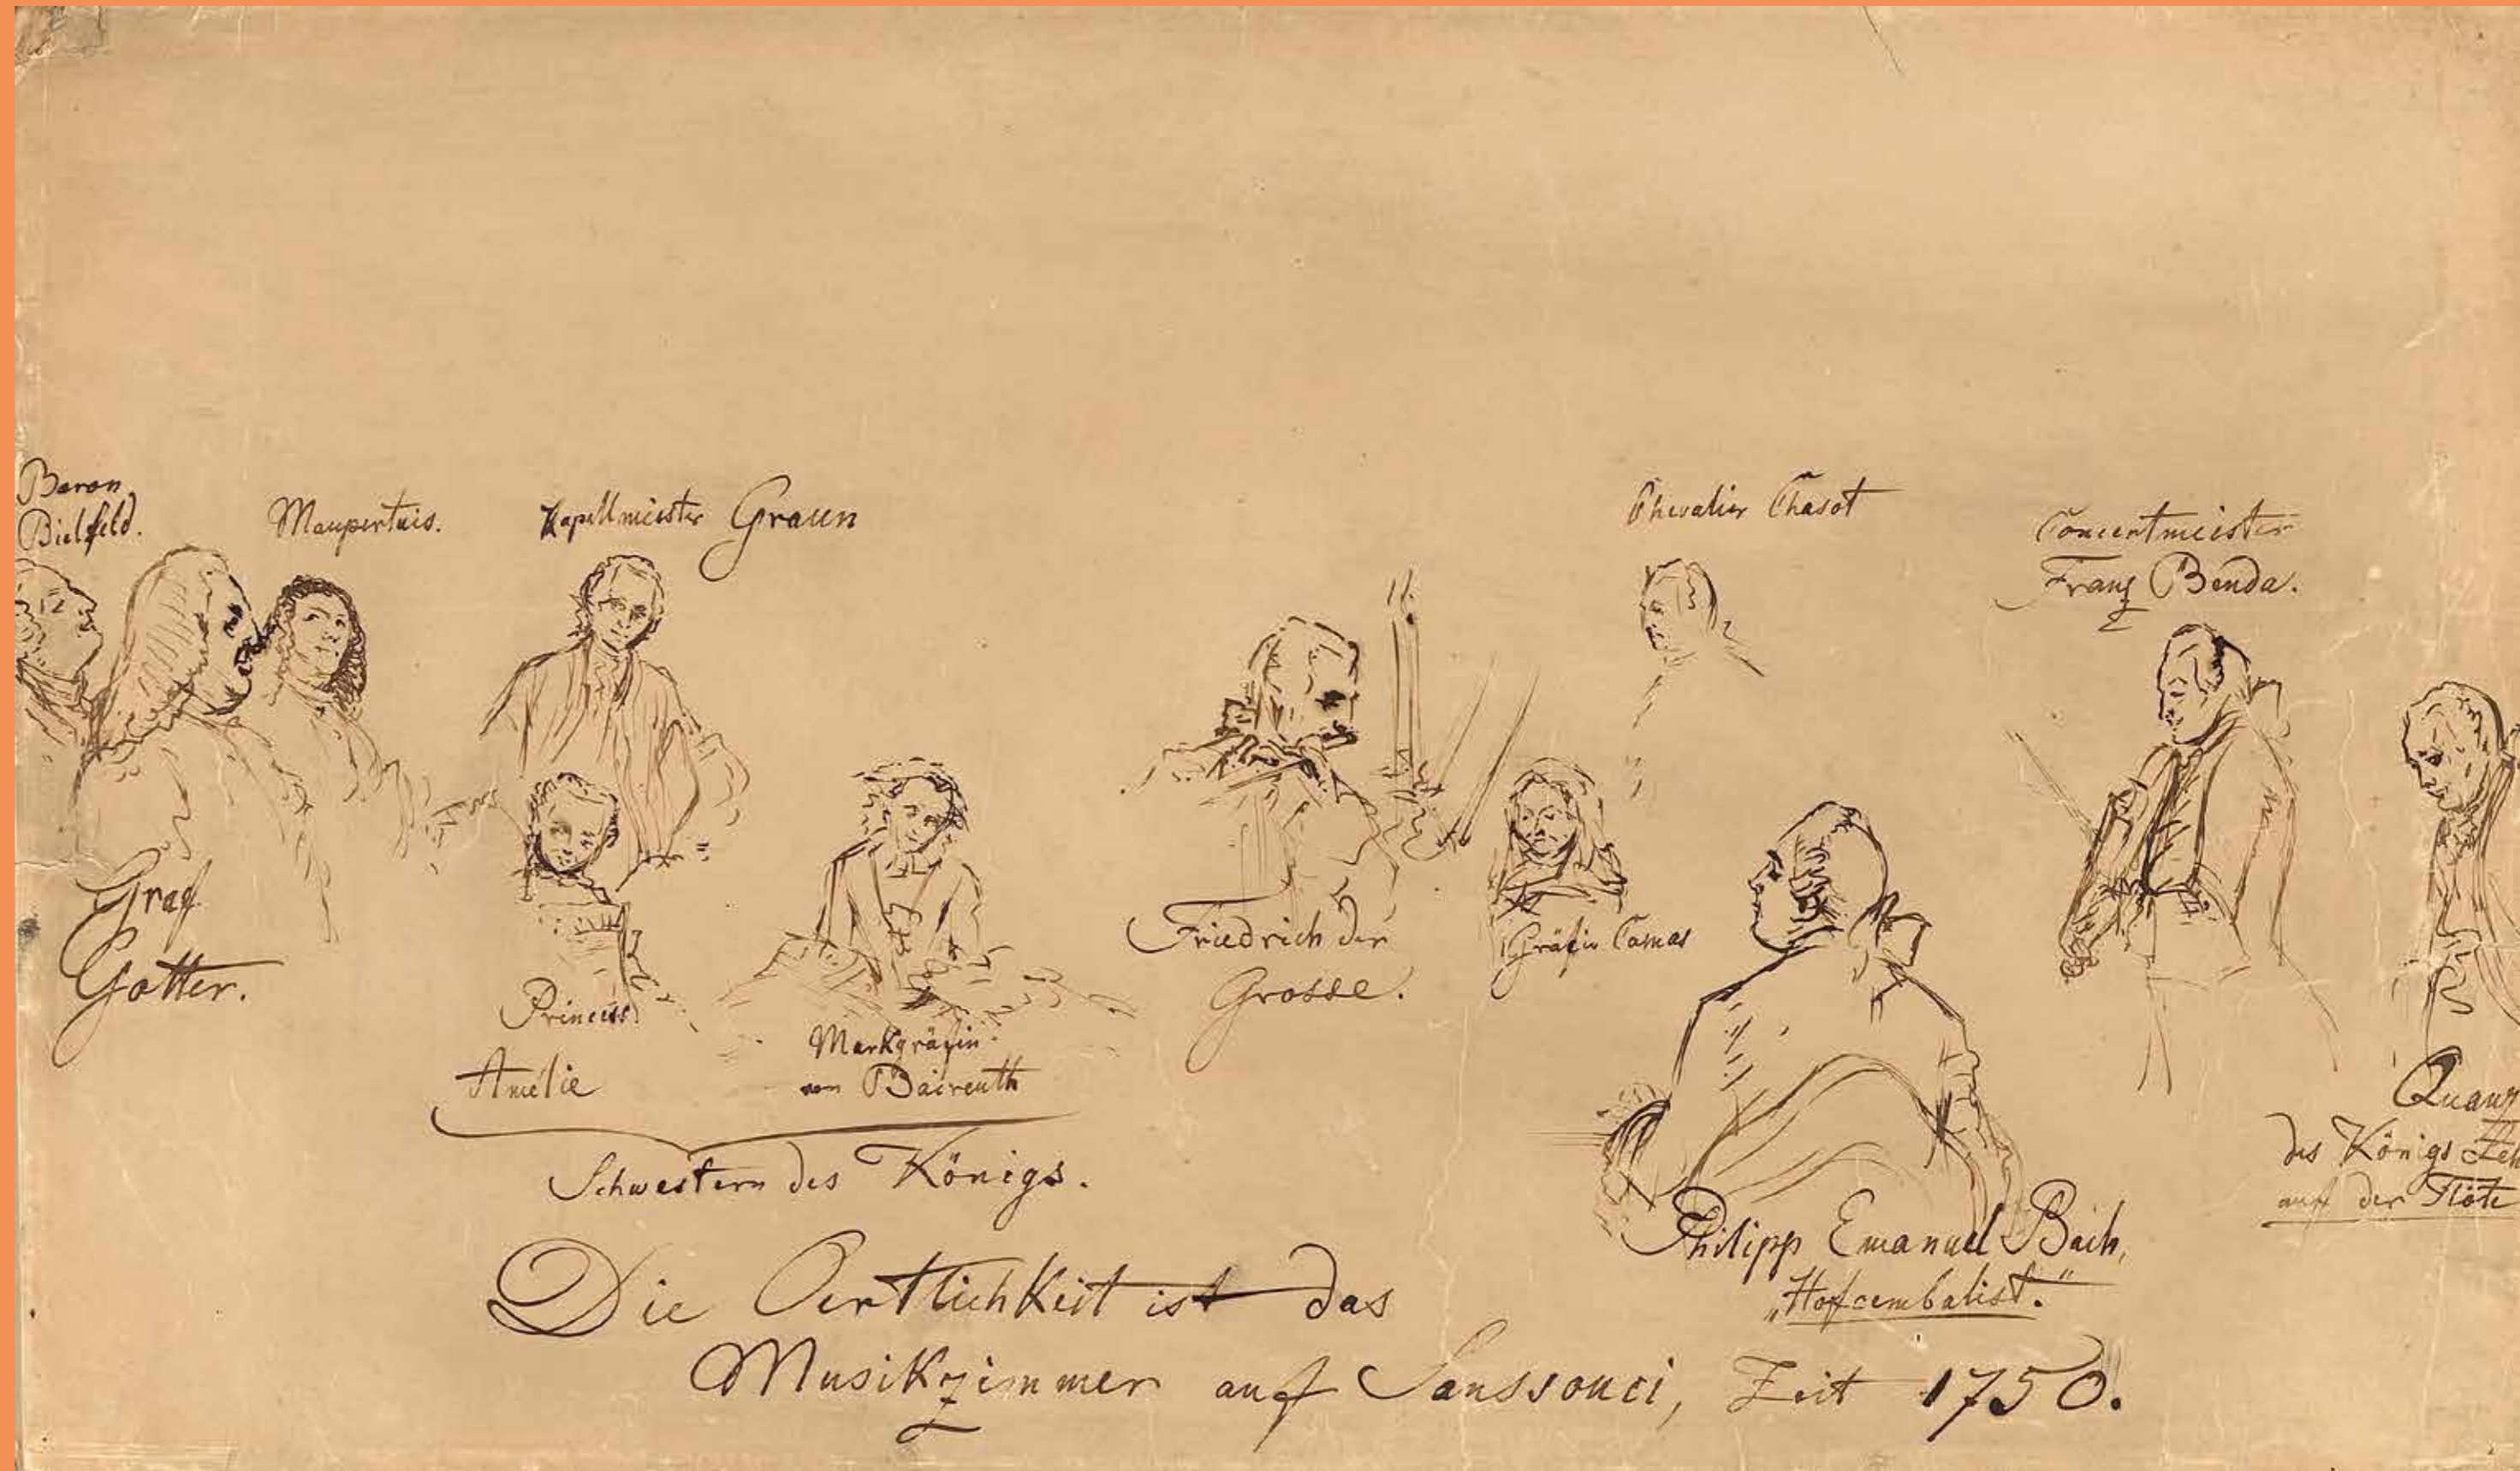 Baron
Bielfeld.
Maupertuis.
Kapellmeister Graun
Chevalier Chasot
Concertmeister
Franz Benda.
Graf
Gotter.
Princess
Amélie
Markgräfin
von Baireuth
Schwestern des Königs.
Friedrich der
Grosse.
Gräfin Camas
Philipp Emanuel Bach,
„Hofcembalist.“
Quanz
des Königs Leh
auf der Flöte
Die Oertlichkeit ist das
Musikzimmer auf Sanssouci, Zeit 1750.